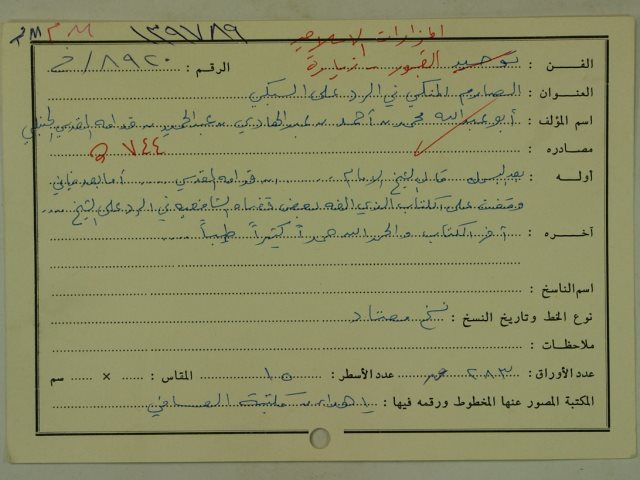 ١٣٩٧٨٩
المزارات الاسلامية
الفـن : توحيد القبور - زيارة الرقم : ٨٩٢٠ / خ
العنـوان : الصارم المنكي في الرد على السبكي
اسم المؤلف : أبو عبد الله محمد بن أحمد بن عبد الهادي بن عبد الحميد بن قدامه المقدسي الحنبلي
مصادره : ٧٤٤ هـ
أوله : بعد البسملة قال الشيخ الإمام ... بن قدامه المقدسي ... أما بعد فإني
وقفت على الكتاب الذي ألفه بعض قضاة الشافعيه في الرد على الشيخ ...
آخـره : آخر الكتاب والحمد لله حمداً كثيراً طيباً ...
اسم الناسخ :
نوع الخط وتاريخ النسخ : نسخ معتاد
ملاحظات :
عدد الأوراق : ٢٨٣ ص عدد الأسطر : ١٥ المقاس : × سم
المكتبة المصور عنها المخطوط ورقمه فيها : اهداء مكتبة